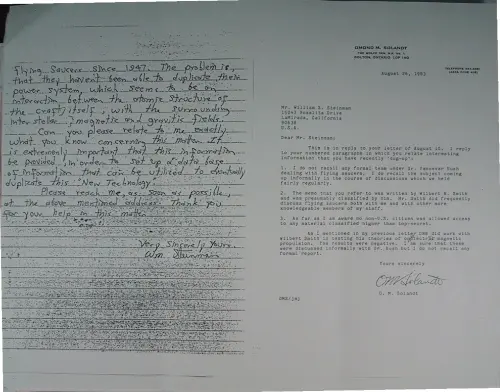 Flying Saucers since 1947. The problem is,
that they haven't been able to duplicate their
power system, which seems to be an
interaction between the atomic structure of
the craft itself, with the surrounding
interstellar, magnetic and gravitic fields.
Can you please relate to me exactly
what you know concerning this matter. It
is extremely important that this information
be provided, in order to set up a data base
of information that can be utilized to eventually
duplicate this "New Technology."
Please reach me, as soon as possible,
at the above mentioned address. Thank you
for your help in this matter.
Very Sincerely Yours,
Wm. Steinman
OMOND M. SOLANDT
August 1983
Mr. William S. Steinman
15043 Rosalita Drive
LaMirada, California
90638
U.S.A.
Dear Mr. Steinman:
This is in reply to your letter of August 10. I reply
in your numbered paragraphs in which you relate interesting
information that you have recently "dug-up":
1. I do not recall any formal team under Dr. Vannevar Bush
dealing with flying saucers. I do recall the subject coming
up informally in the course of discussions which we held
fairly regularly.
2. The memo that you refer to was written by Wilbert B. Smith
and was presumably classified by him. Mr. Smith did frequently
discuss flying saucers both with me and with other more
knowledgeable members of my staff.
3. As far as I am aware no non-U.S. citizen was allowed access
to any material classified higher than top-secret.
As I mentioned in my previous letter DRB did work with
Wilbert Smith in testing his theories of magnetic
propulsion. The results were negative. I am sure that these
were discussed informally with Dr. Bush but I do not recall any
formal report.
Yours sincerely
OM Solandt
O. M. Solandt